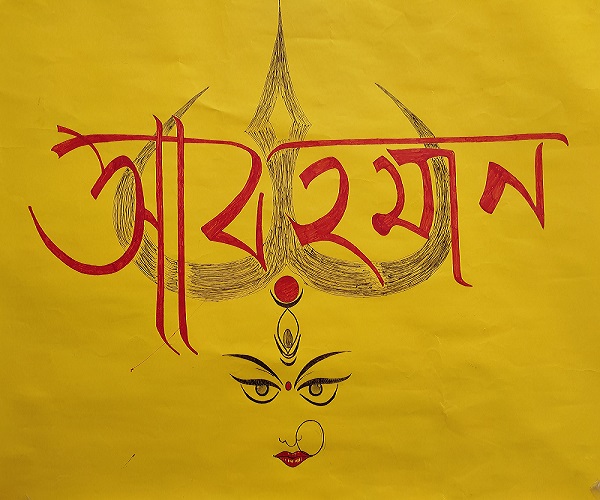 আবহমান